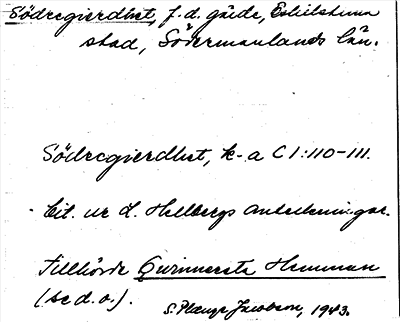 Södregierdhet, f. d. gärde, Eskilstuna
stad, Södermanlands län.
Södregierdhet, k-a C 1:110-111.
Cit. ur L. Hellbergs anteckningar.
Tillhörde Qwinnersta Hemman
(se d. o.).
S. Jacobson, 1943.